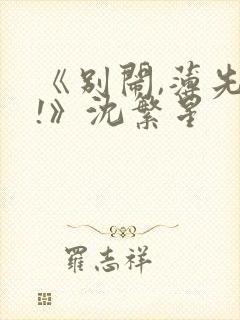 《别鬧,薄先
!》沈繁星
羅志祥